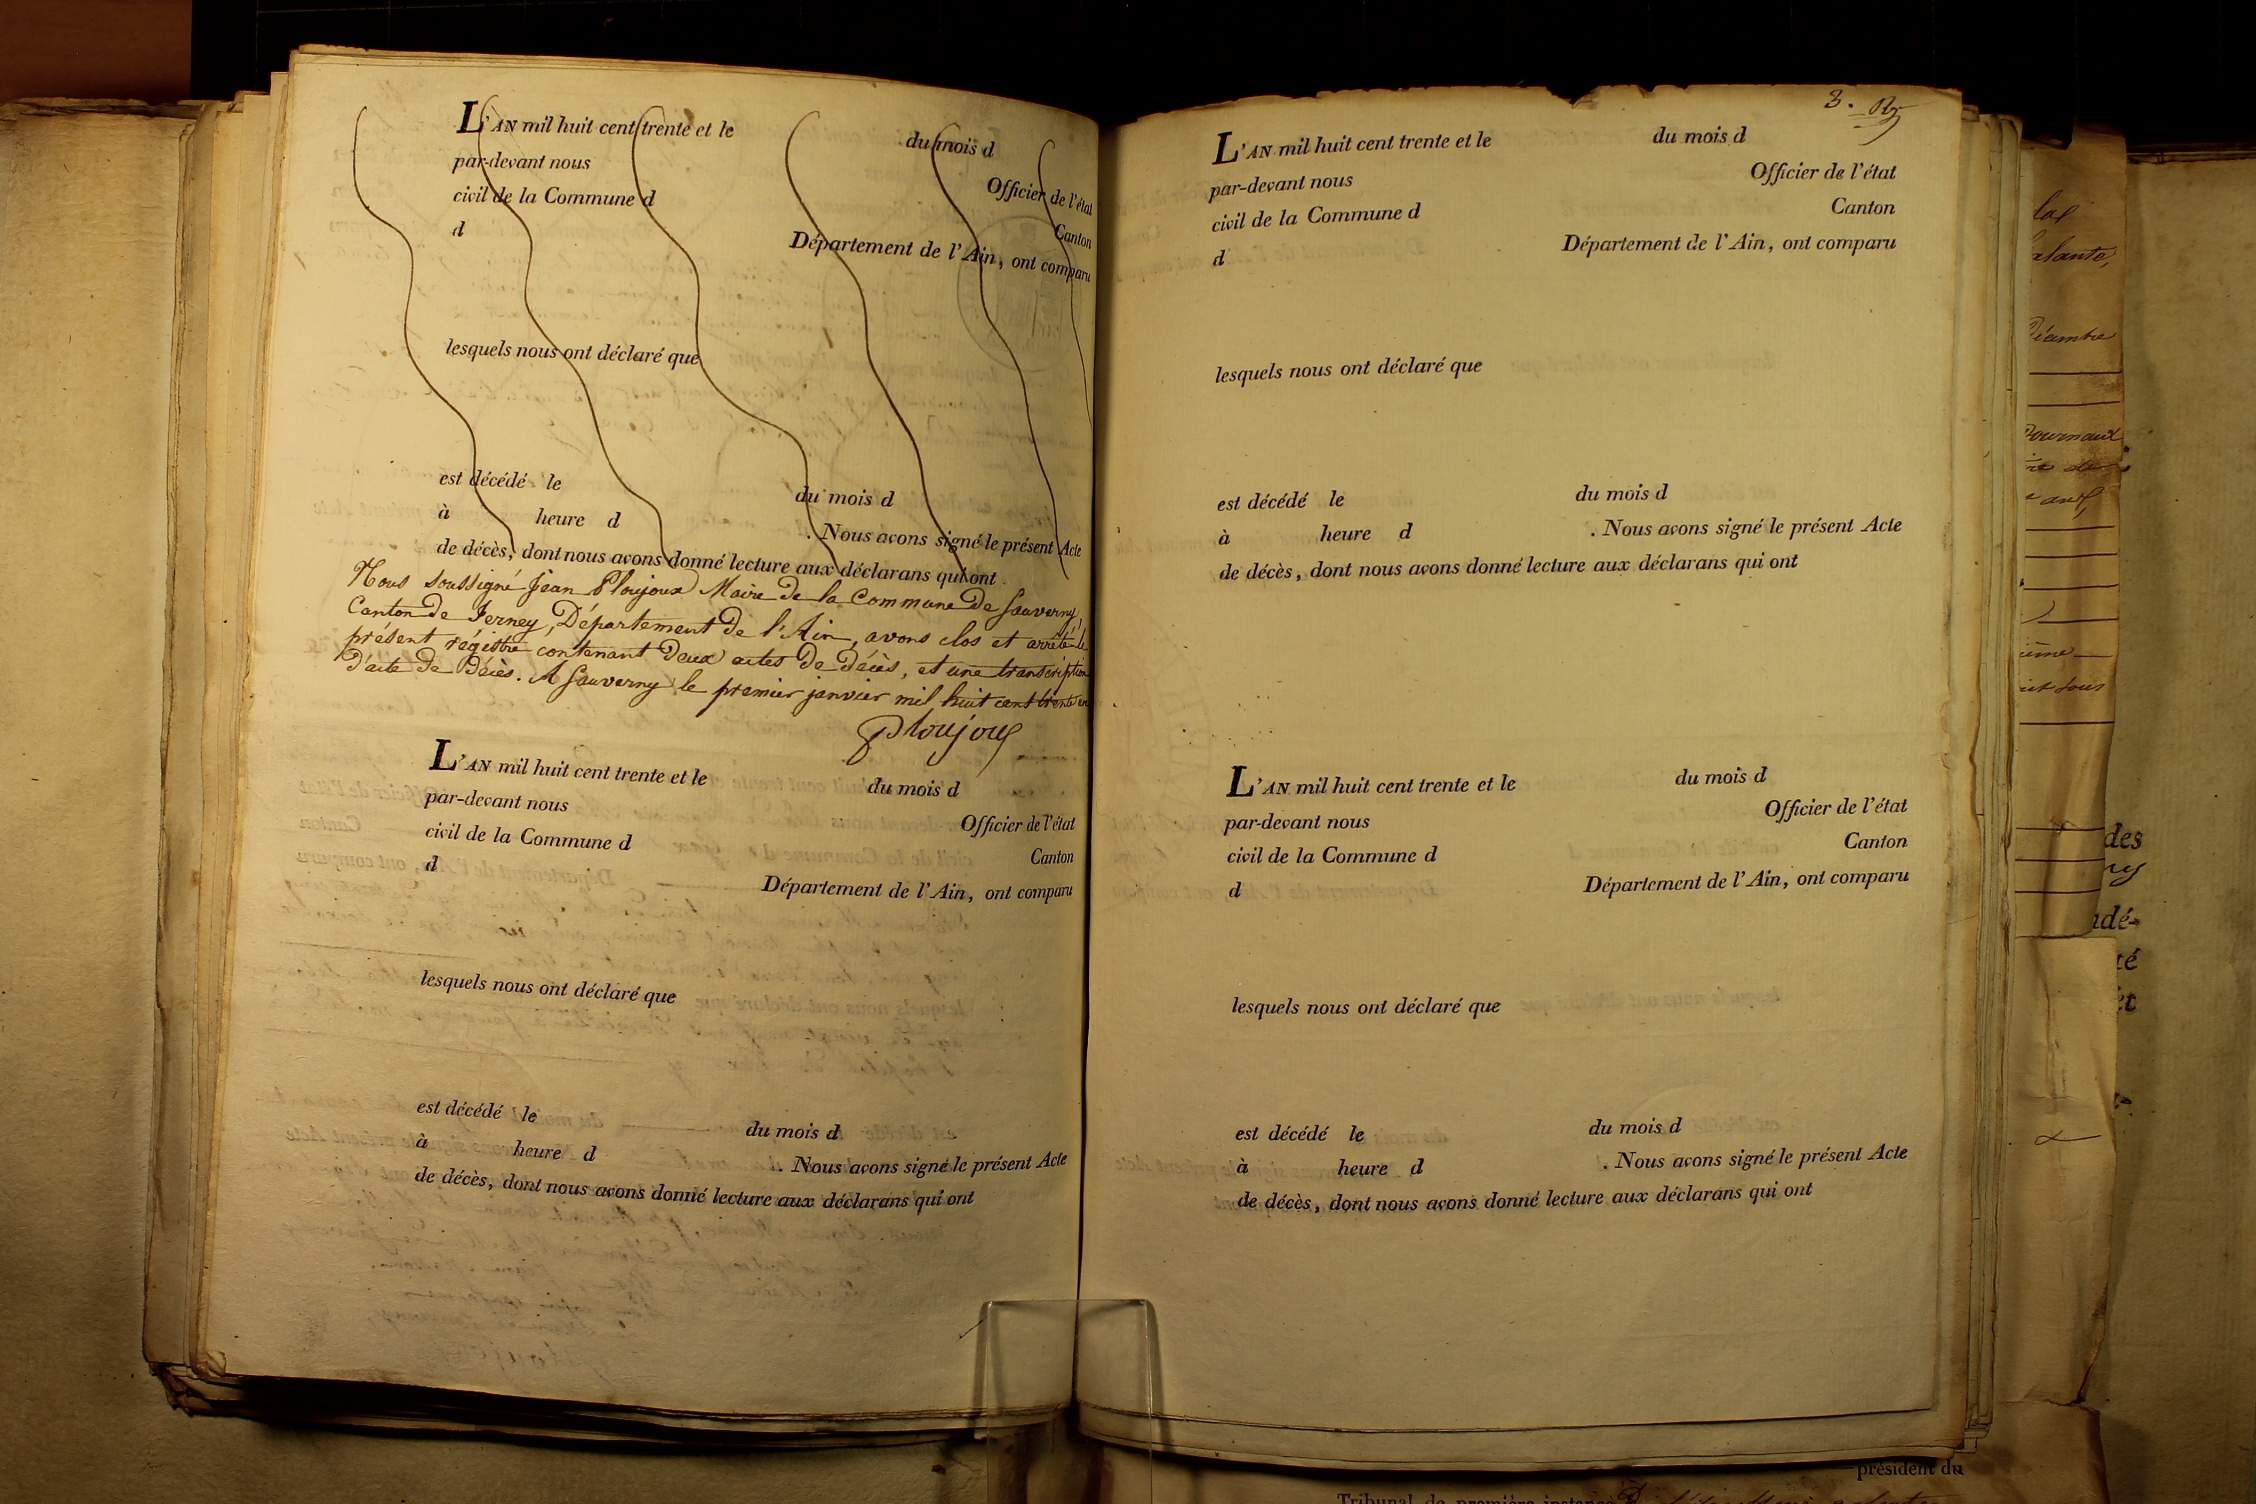 L'AN mil huit cent trente et le du mois d
par-devant nous Officier de l'état
civil de la Commune d Canton
d Département de l'Ain, ont comparu
lesquels nous ont déclaré que
est décédé le du mois d
à heure d . Nous avons signé le présent Acte
de décès, dont nous avons donné lecture aux déclarans qui ont
Nous soussigné Jean Ploujoux Maire de la Commune de Sauverny,
Canton de Ferney, Département de l'Ain, avons clos et arrêté le
présent régistre contenant deux actes de décès, et une transcription
d'acte de décès. A Sauverny le premier janvier mil huit cent trente un
Ploujoux
L'AN mil huit cent trente et le du mois d
par-devant nous Officier de l'état
civil de la Commune d Canton
d Département de l'Ain, ont comparu
lesquels nous ont déclaré que
est décédé le du mois d
à heure d . Nous avons signé le présent Acte
de décès, dont nous avons donné lecture aux déclarans qui ont
3.
L'AN mil huit cent trente et le du mois d
par-devant nous Officier de l'état
civil de la Commune d Canton
d Département de l'Ain, ont comparu
lesquels nous ont déclaré que
est décédé le du mois d
à heure d . Nous avons signé le présent Acte
de décès, dont nous avons donné lecture aux déclarans qui ont
L'AN mil huit cent trente et le du mois d
par-devant nous Officier de l'état
civil de la Commune d Canton
d Département de l'Ain, ont comparu
lesquels nous ont déclaré que
est décédé le du mois d
à heure d . Nous avons signé le présent Acte
de décès, dont nous avons donné lecture aux déclarans qui ont
des
président du
Tribunal de première instance